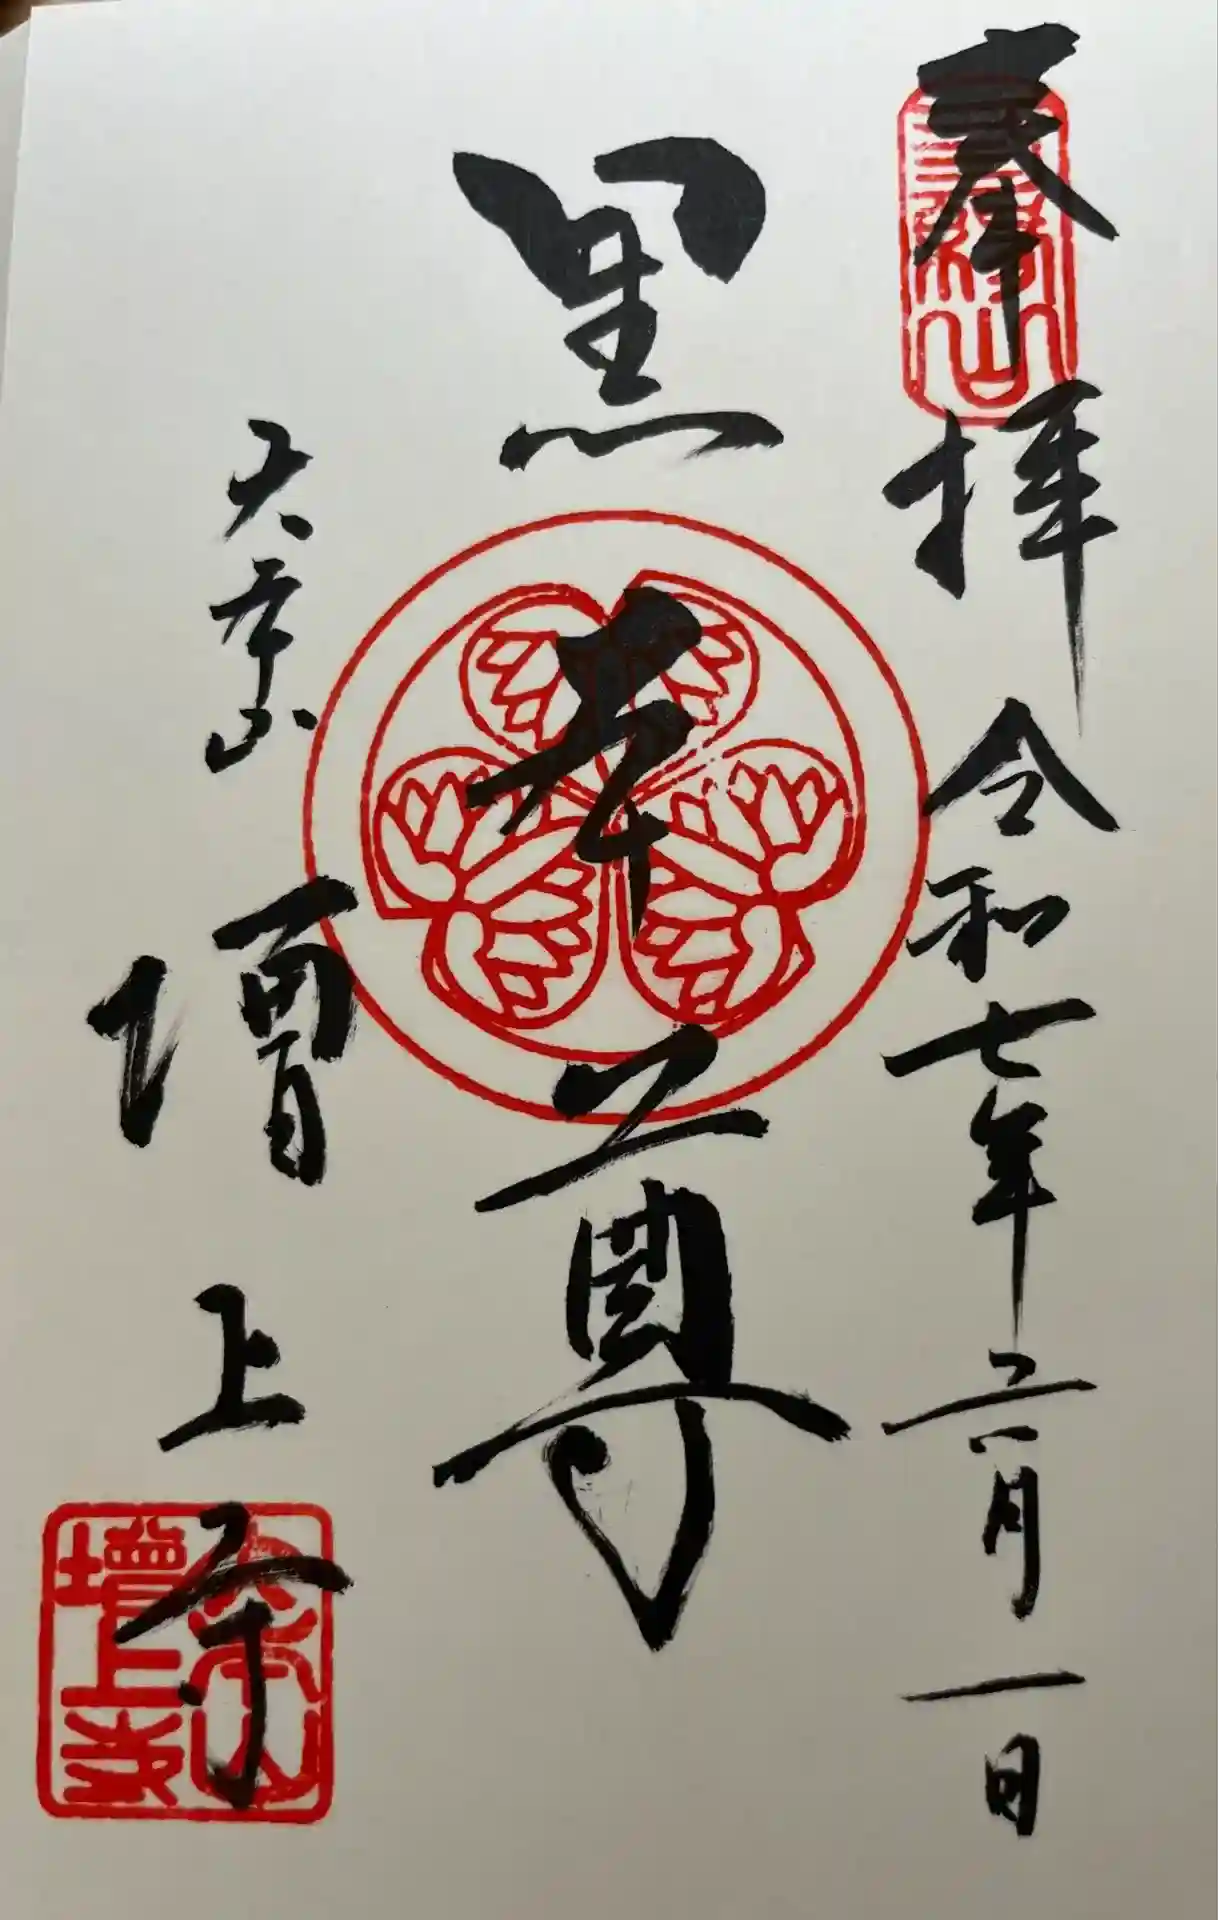 奉拝 令和七年二月一日
三縁山
黒本尊
大本山 増上寺
大本山
増上寺